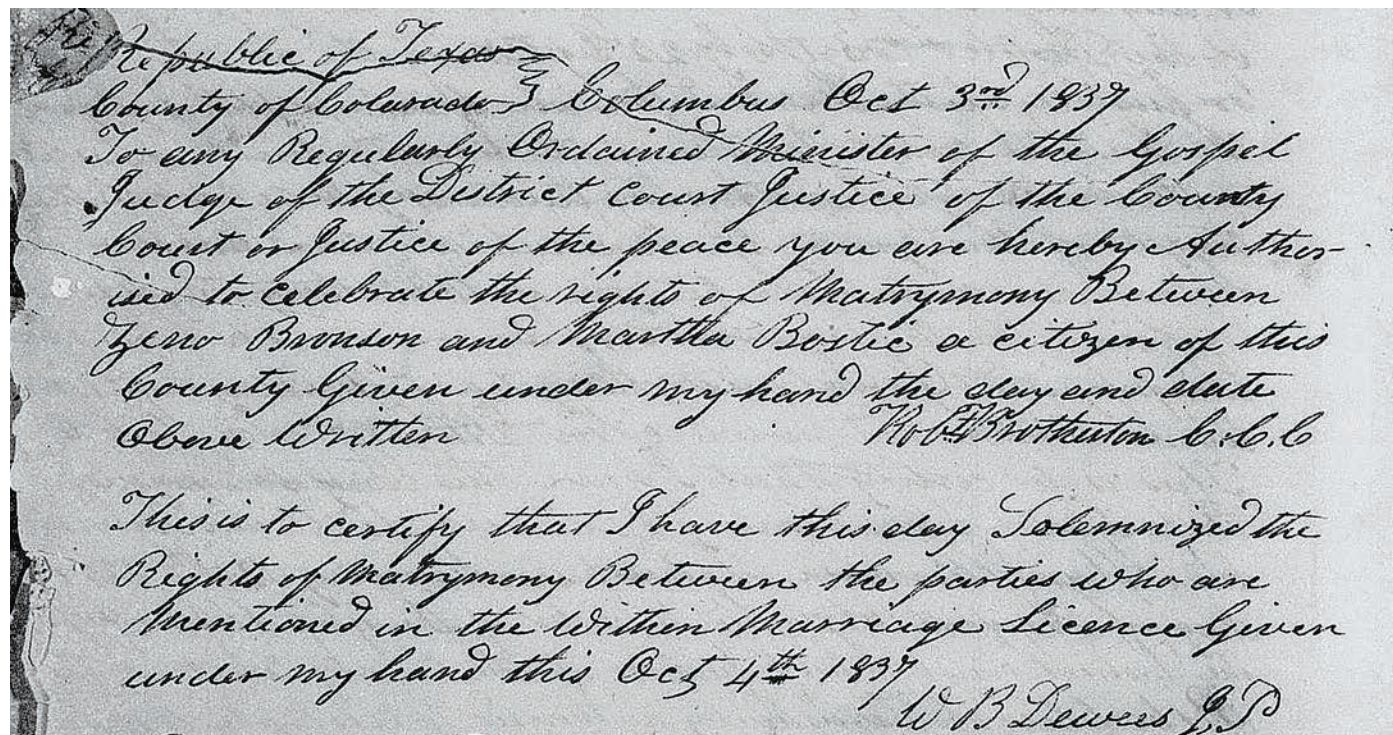 Republic of Texas
County of Colorado } Columbus Oct 3rd 1837
To any Regularly Ordained Minister of the Gospel
Judge of the District Court Justice of the County
Court or Justice of the peace you are hereby Author-
ised to Celebrate the rights of Matrymony Between
Zeno Bronson and Martha Bostic a citizen of this
County Given under my hand the day and date
Above Written Robt Brotherton C.C.C
This is to certify that I have this day Solemnized the
Rights of Matrymony Between the parties who are
Mentioned in the Within Marriage Licence Given
under my hand this Oct 4th 1837
W B Dewees J,P